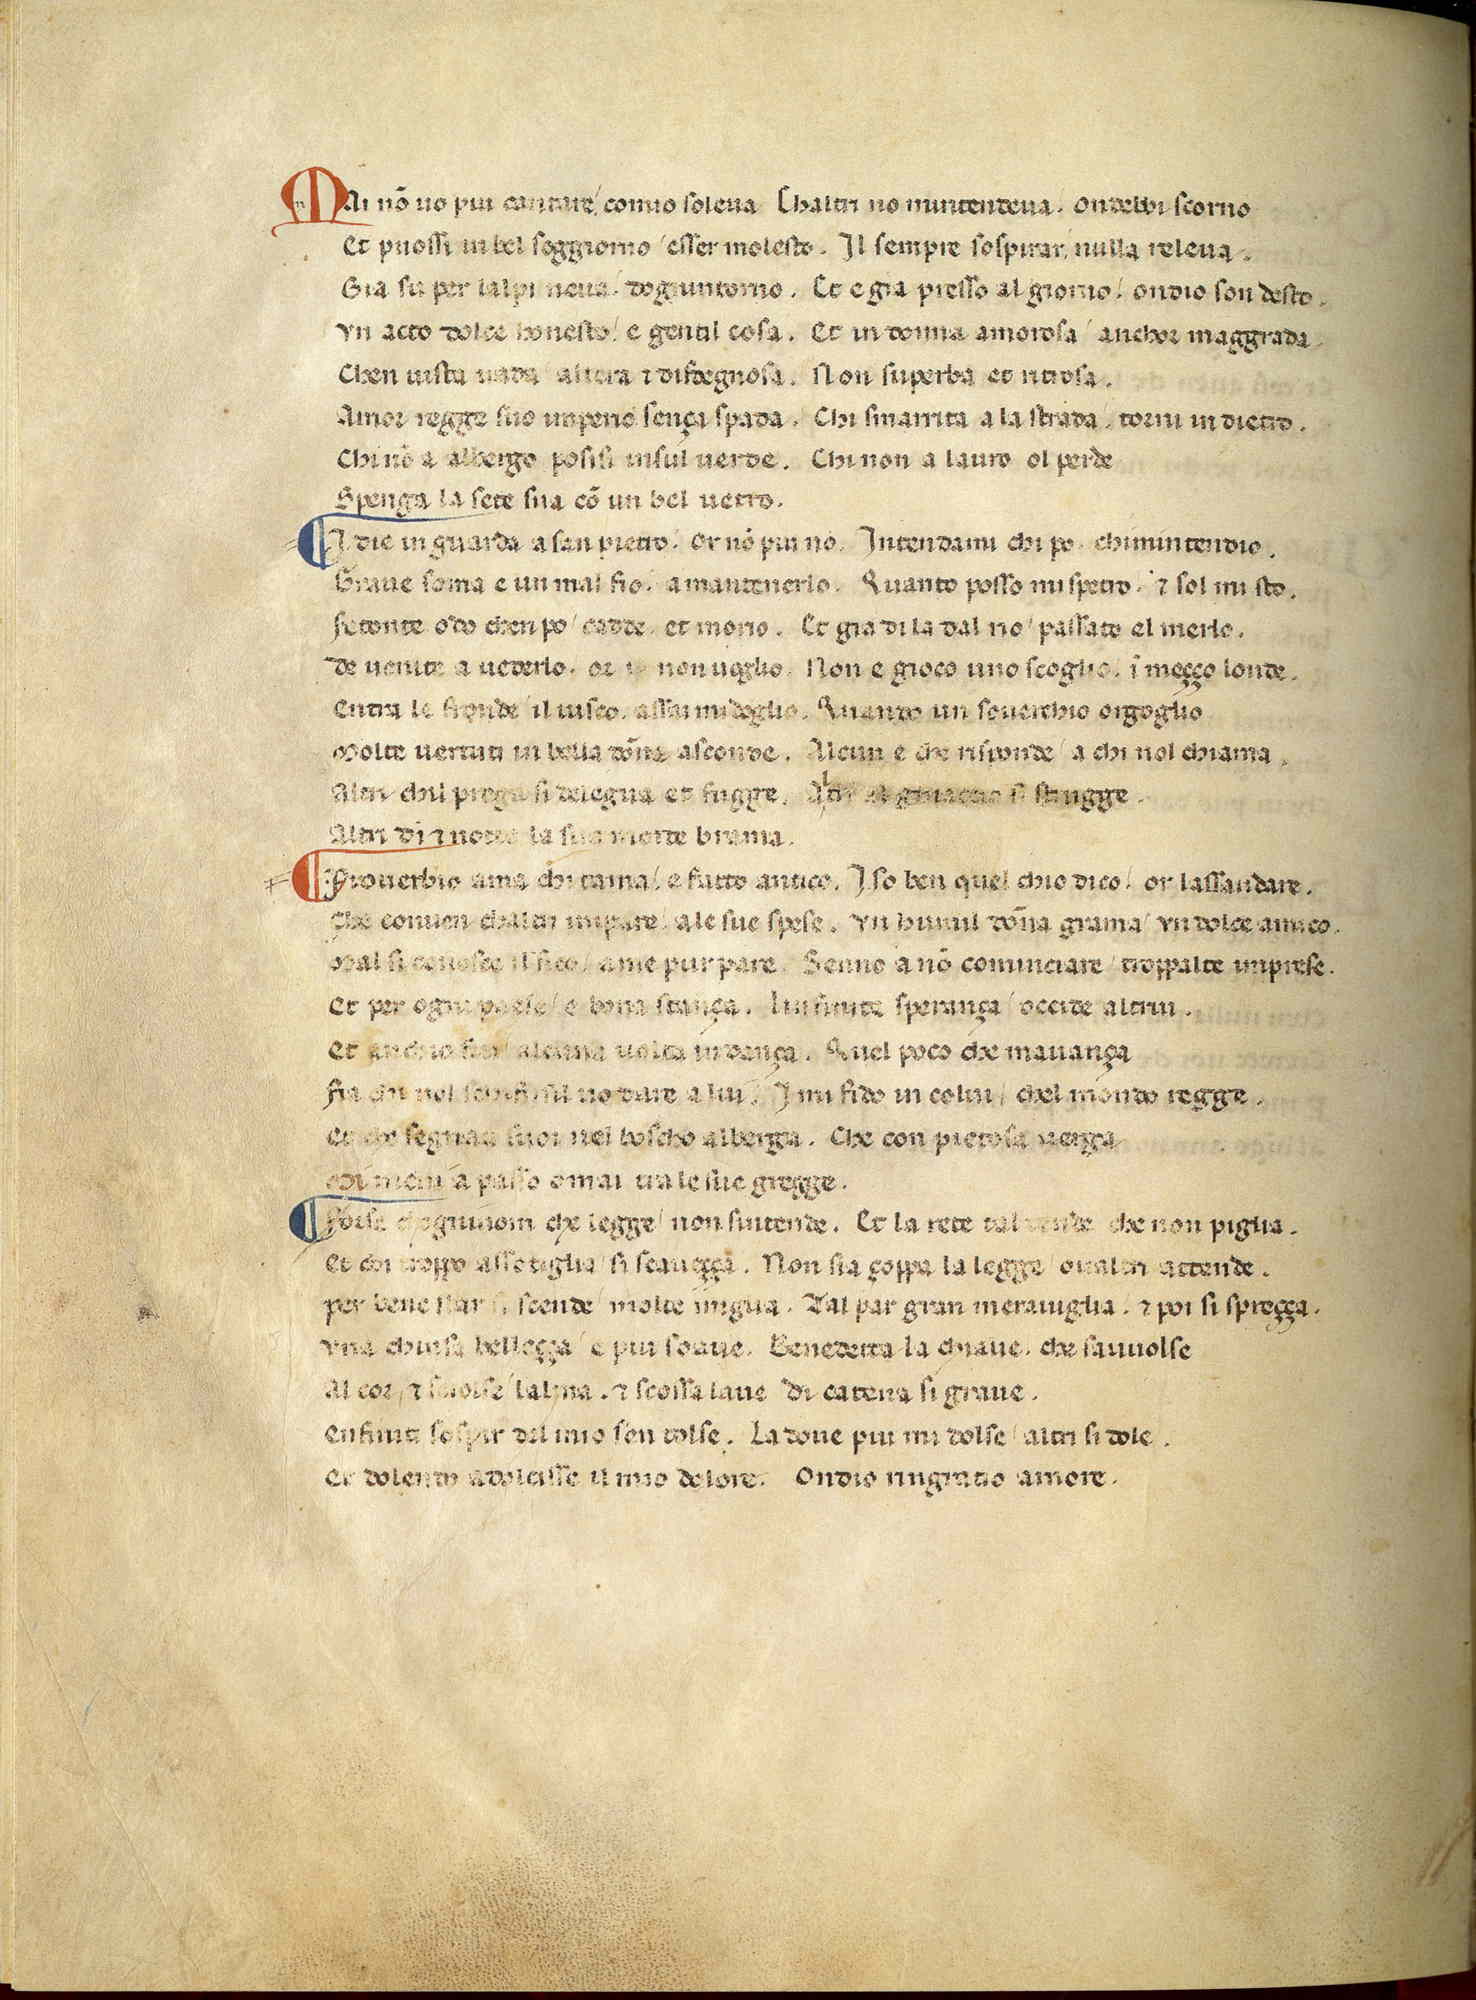 MAi nõ uo piu cantare / comio soleua Chaltri no mintendeua. ondebbi scorno
Et puossi in bel soggiorno / esser molesto. Il sempre sospirar / nulla releua.
Gia su per lalpi neua / dogniuntorno. Et e gia presso al giorno / ondio son desto.
Vn acto dolce honesto / e gentil cosa. Et in donna amorosa / anchor maggrada.
Chen uista uada altera ⁊ disdegnosa. Non superba et ritrosa.
Amor regge suo imperio sença spada. Chi smarrita a la strada / torni in dietro.
Chi nõ a albergo posisi insul uerde. Chi non a lauro ol perde
Spenga la sete sua cõ un bel uetro.
I die in guarda a san pietro / or nõ piu no. Intendami chi po. chimintendio.
Graue soma e un mal fio / amantenerlo. Quanto posso mi spetro. ⁊ sol mi sto.
fetonte odo chen po / cadde. et morio. Et gia di la dal rio / passato el merlo.
De uenite a uederlo. or i non uoglio. Non e gioco uno scoglio. ĩ meçço londe.
Entra le fronde / il uisco. assai midoglio. Quando un souerchio orgoglio
Molte uertuti in bella dõna asconde. Alcun e che risponde / a chi nol chiama.
Altri chil prega si delegua et fugge. Altri al ghiaccio si strugge.
Altri dí ⁊ notte la sua morte brama.
Prouerbio ama chi tama / e facto antico. I so ben quel chio dico / or lassandare.
Che conuen chaltri impare / ale sue spese. Vn humil dõna grama / vn dolce amico.
Mal si conosce il fico / ame pur pare. Senno a nõ cominciare / troppalte imprese.
Et per ogni paese / e bona stança. linfinita sperança / occide altrui.
Et anchio fui / alcuna uolta in dança. Quel poco che mauança
fia chi nol schifi / sil uo dare a lui. I mi fido in colui / chel mondo regge.
Et che seguaci suoi nel boscho alberga. Che con pietosa uerga
Mi meni a passo omai tra le sue gregge.
Forse chogniuom che legge / non sintende. Et la rete tal tende che non piglia.
Et chi troppo assotiglia / si scaueçça. Non sia çoppa la legge / oualtri attende.
per bene star si scende / molte miglia. Tal par gran merauiglia. ⁊ poi si spreçça.
Vna chiusa belleçça / e piu soaue. Benedetta la chiaue. che sauuolse
Al cor, ⁊ sciolse lalma. ⁊ scossa laue di catena si graue.
Enfiniti sospir del mio sen tolse. La doue piu mi dolse / altri si dole.
Et dolendo adolcisse il mio dolore. Ondio ringratio amore.